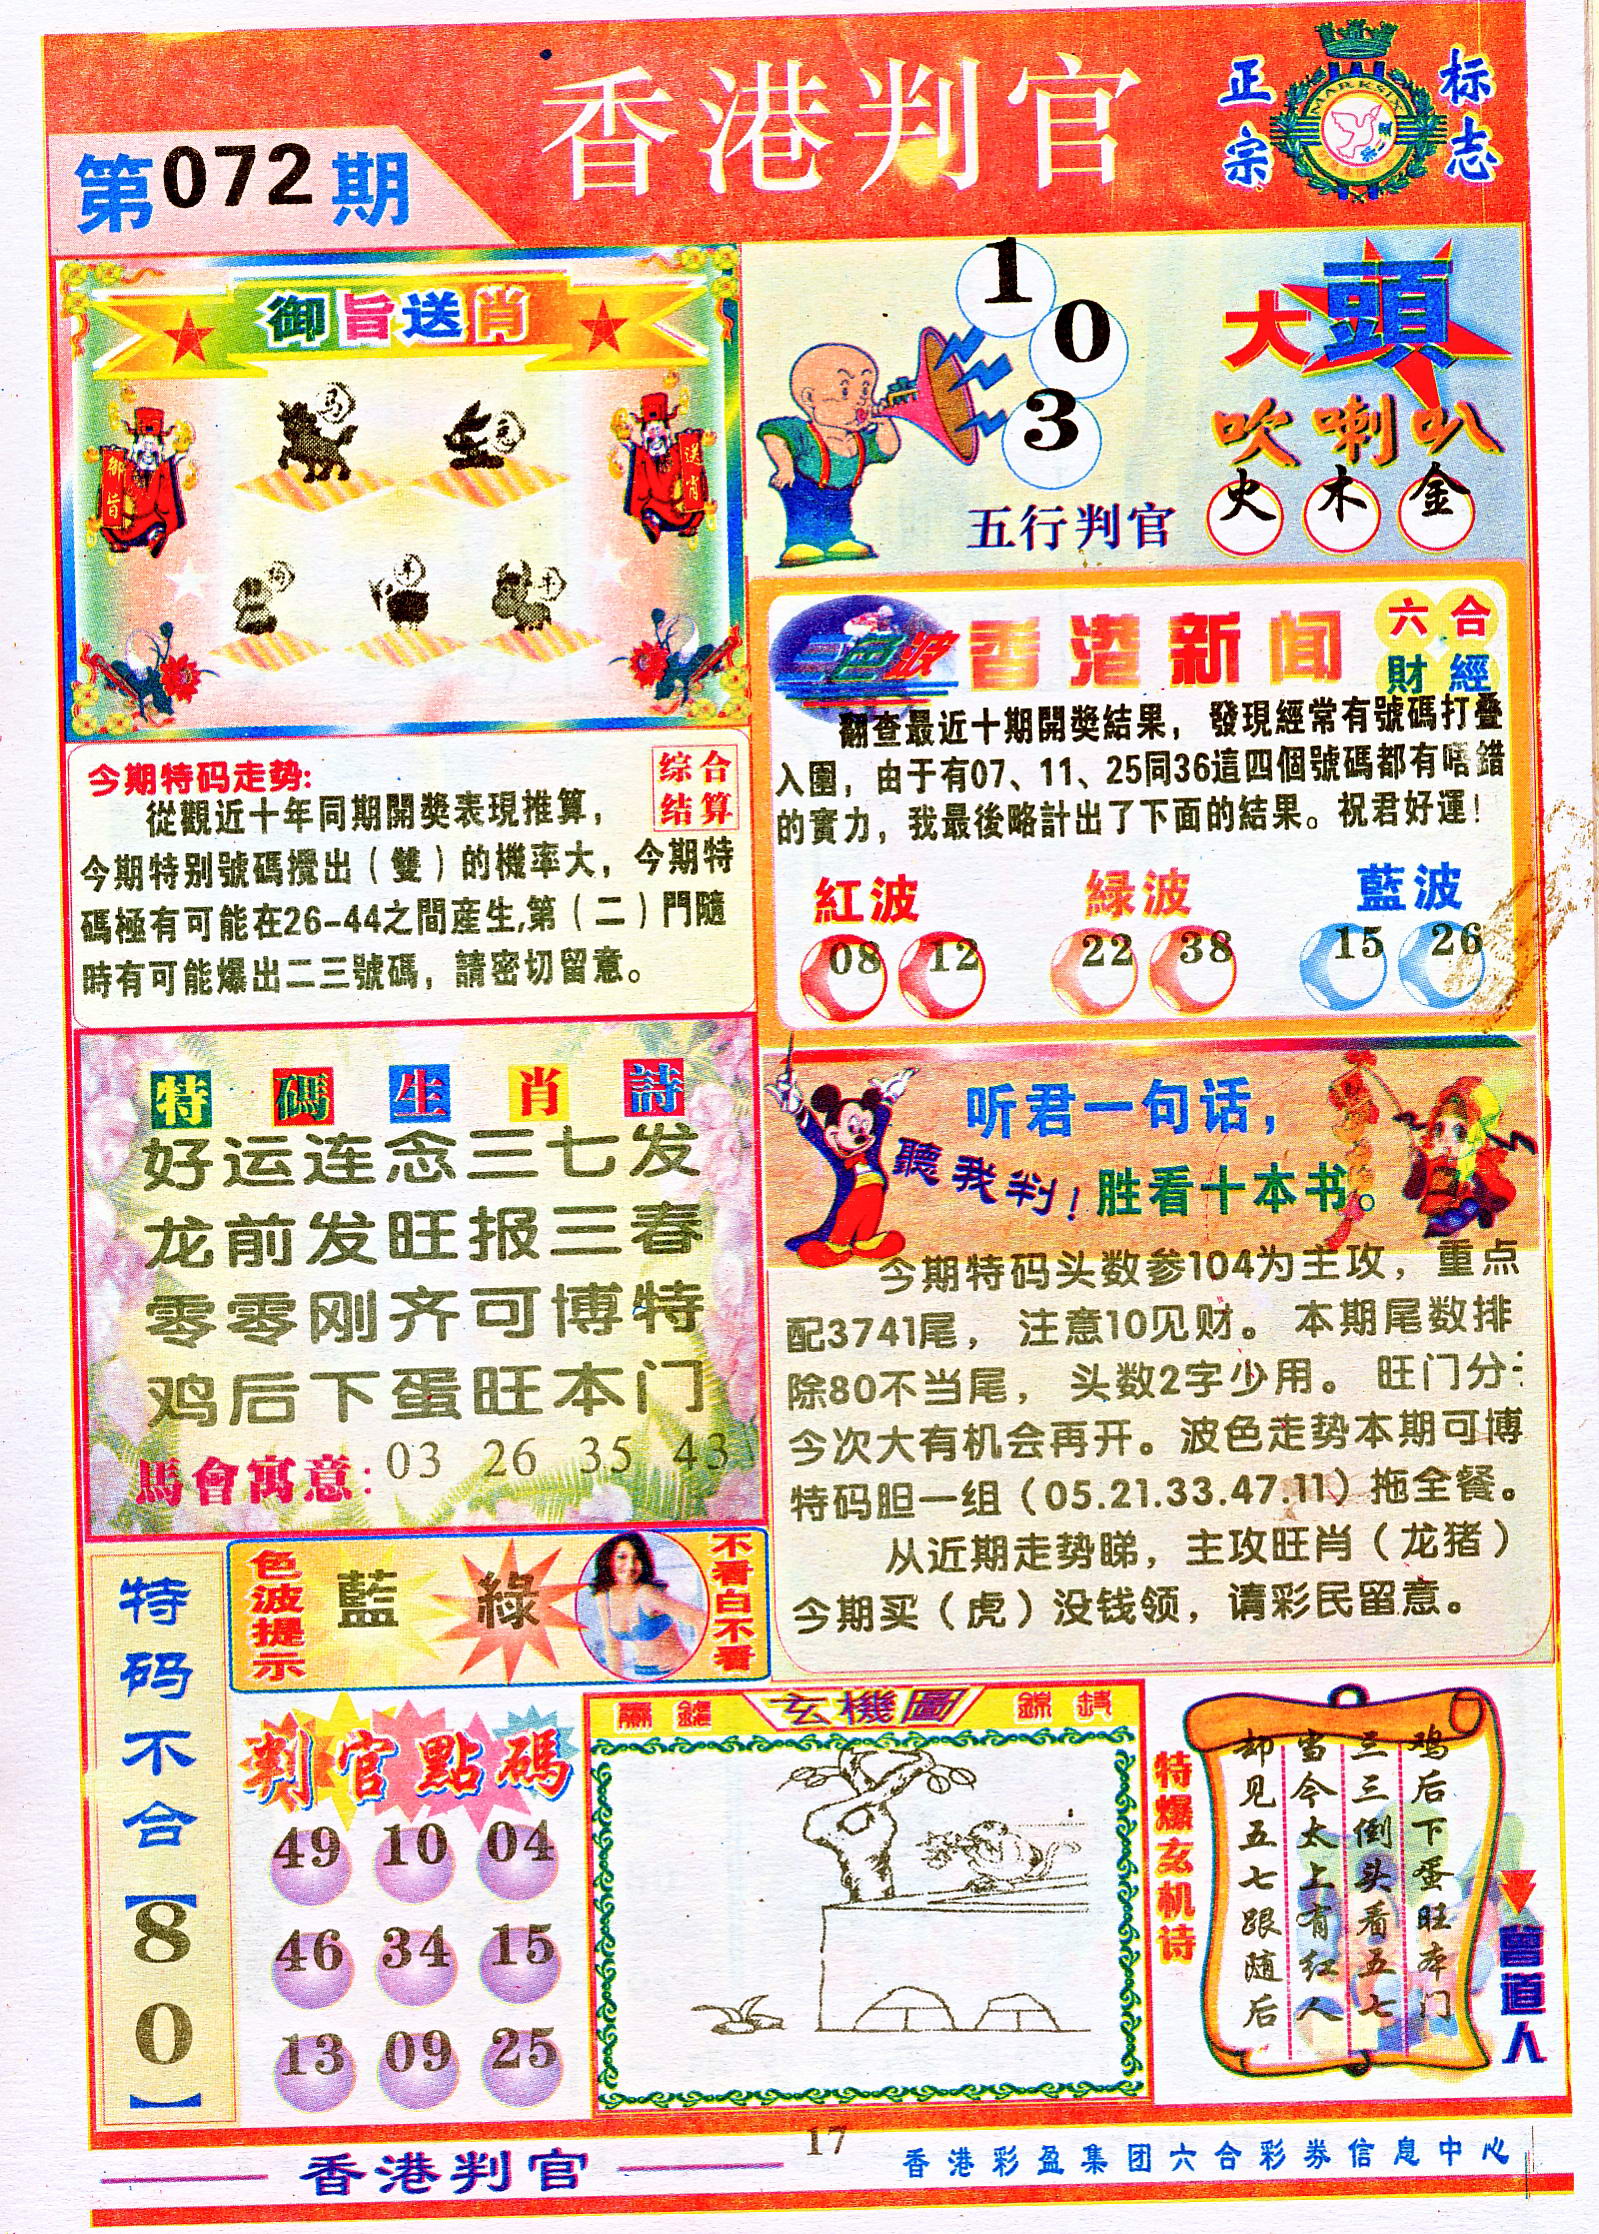 香港判官
正宗
标志
MARK SIX
第072期
御旨送肖
马
兔
御旨
送肖
狗
羊
牛
1
0
3
大頭
吹喇叭
五行判官
火 木 金
今期特码走势:
综合
结算
從觀近十年同期開獎表現推算，
今期特别號碼攪出（雙）的機率大，今期特
碼極有可能在26-44之間産生,第（二）門隨
時有可能爆出二三號碼，請密切留意。
三色波
香港新闻
六合
財經
翻查最近十期開獎結果，發現經常有號碼打叠
入圍，由于有07、11、25同36這四個號碼都有唔錯
的實力，我最後略計出了下面的結果。祝君好運！
紅波 緑波 藍波
08 12 22 38 15 26
特碼生肖詩
好运连念三七发
龙前发旺报三春
零零刚齐可博特
鸡后下蛋旺本门
馬會寓意: 03 26 35 43
听君一句话，
聽我判！
胜看十本书。
今期特码头数参104为主攻，重点
配3741尾，注意10见财。本期尾数排
除80不当尾，头数2字少用。旺门分
今次大有机会再开。波色走势本期可博
特码胆一组（05.21.33.47.11）拖全餐。
从近期走势睇，主攻旺肖（龙猪）
今期买（虎）没钱领，请彩民留意。
特码不合【80】
色波提示
藍 綠
不看白不看
判官點碼
49 10 04
46 34 15
13 09 25
玄機圖
特爆玄机诗
鸡后下蛋旺本门
三三倒头看五七
当今太上有红人
却见五七跟随后
曾道人
17
香港判官
香港彩盈集团六合彩券信息中心